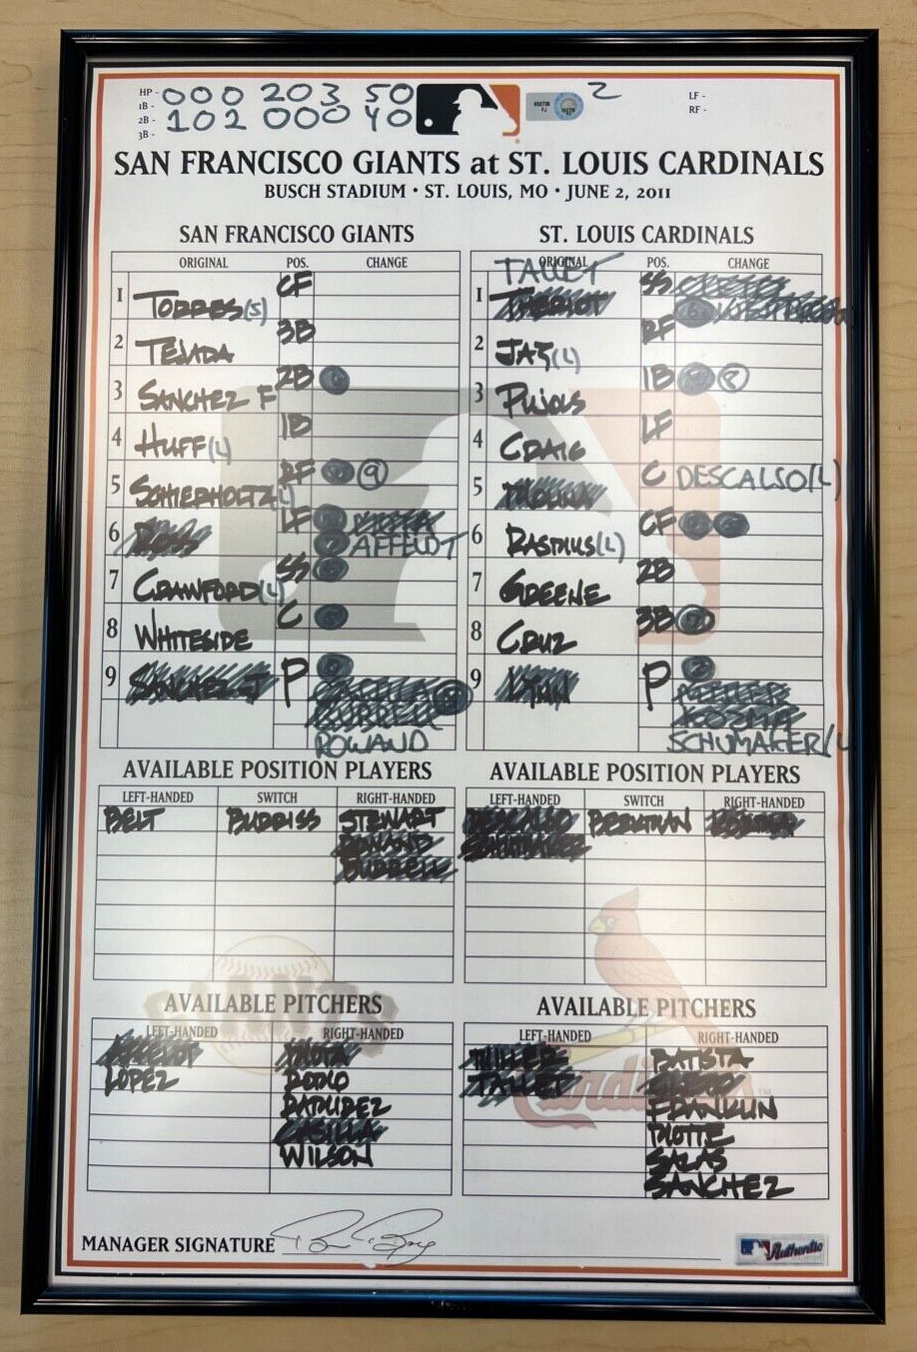 HP - 000 203 50 2 LF -
1B - RF -
2B - 102 000 40
3B -
SAN FRANCISCO GIANTS at ST. LOUIS CARDINALS
BUSCH STADIUM • ST. LOUIS, MO • JUNE 2, 2011
SAN FRANCISCO GIANTS
ORIGINAL POS. CHANGE
1 TORRES(S) CF
2 TEJADA 3B
3 SANCHEZ F 2B
4 HUFF(L) 1B
5 SCHIERHOLTZ(L) RF 9
6 ROSS LF MOTA
AFFELDT
7 CRAWFORD(L) SS
8 WHITESIDE C
9 SANCHEZ J P CASILLA
BURRELL
ROWAND
ST. LOUIS CARDINALS
ORIGINAL POS. CHANGE
TALLET
1 THERIOT SS
2 JAY(L) RF
3 PUJOLS 1B 8
4 CRAIG LF
5 MOLINA C DESCALSO(L)
6 RASMUS(L) CF
7 GREENE 2B
8 CRUZ 3B
9 LYNN P MILLER
KOZMA
SCHUMAKER(L
AVAILABLE POSITION PLAYERS
LEFT-HANDED SWITCH RIGHT-HANDED
BELT BURRISS STEWART
ROWAND
BURRELL
AVAILABLE POSITION PLAYERS
LEFT-HANDED SWITCH RIGHT-HANDED
DESCALSO BERKMAN KOZMA
SCHUMAKER
AVAILABLE PITCHERS
LEFT-HANDED RIGHT-HANDED
AFFELDT MOTA
LOPEZ ROMO
RAMIREZ
CASILLA
WILSON
AVAILABLE PITCHERS
LEFT-HANDED RIGHT-HANDED
MILLER BATISTA
TALLET
FRANKLIN
MOTTE
SALAS
SANCHEZ
Cardinals
MANAGER SIGNATURE
Authentic